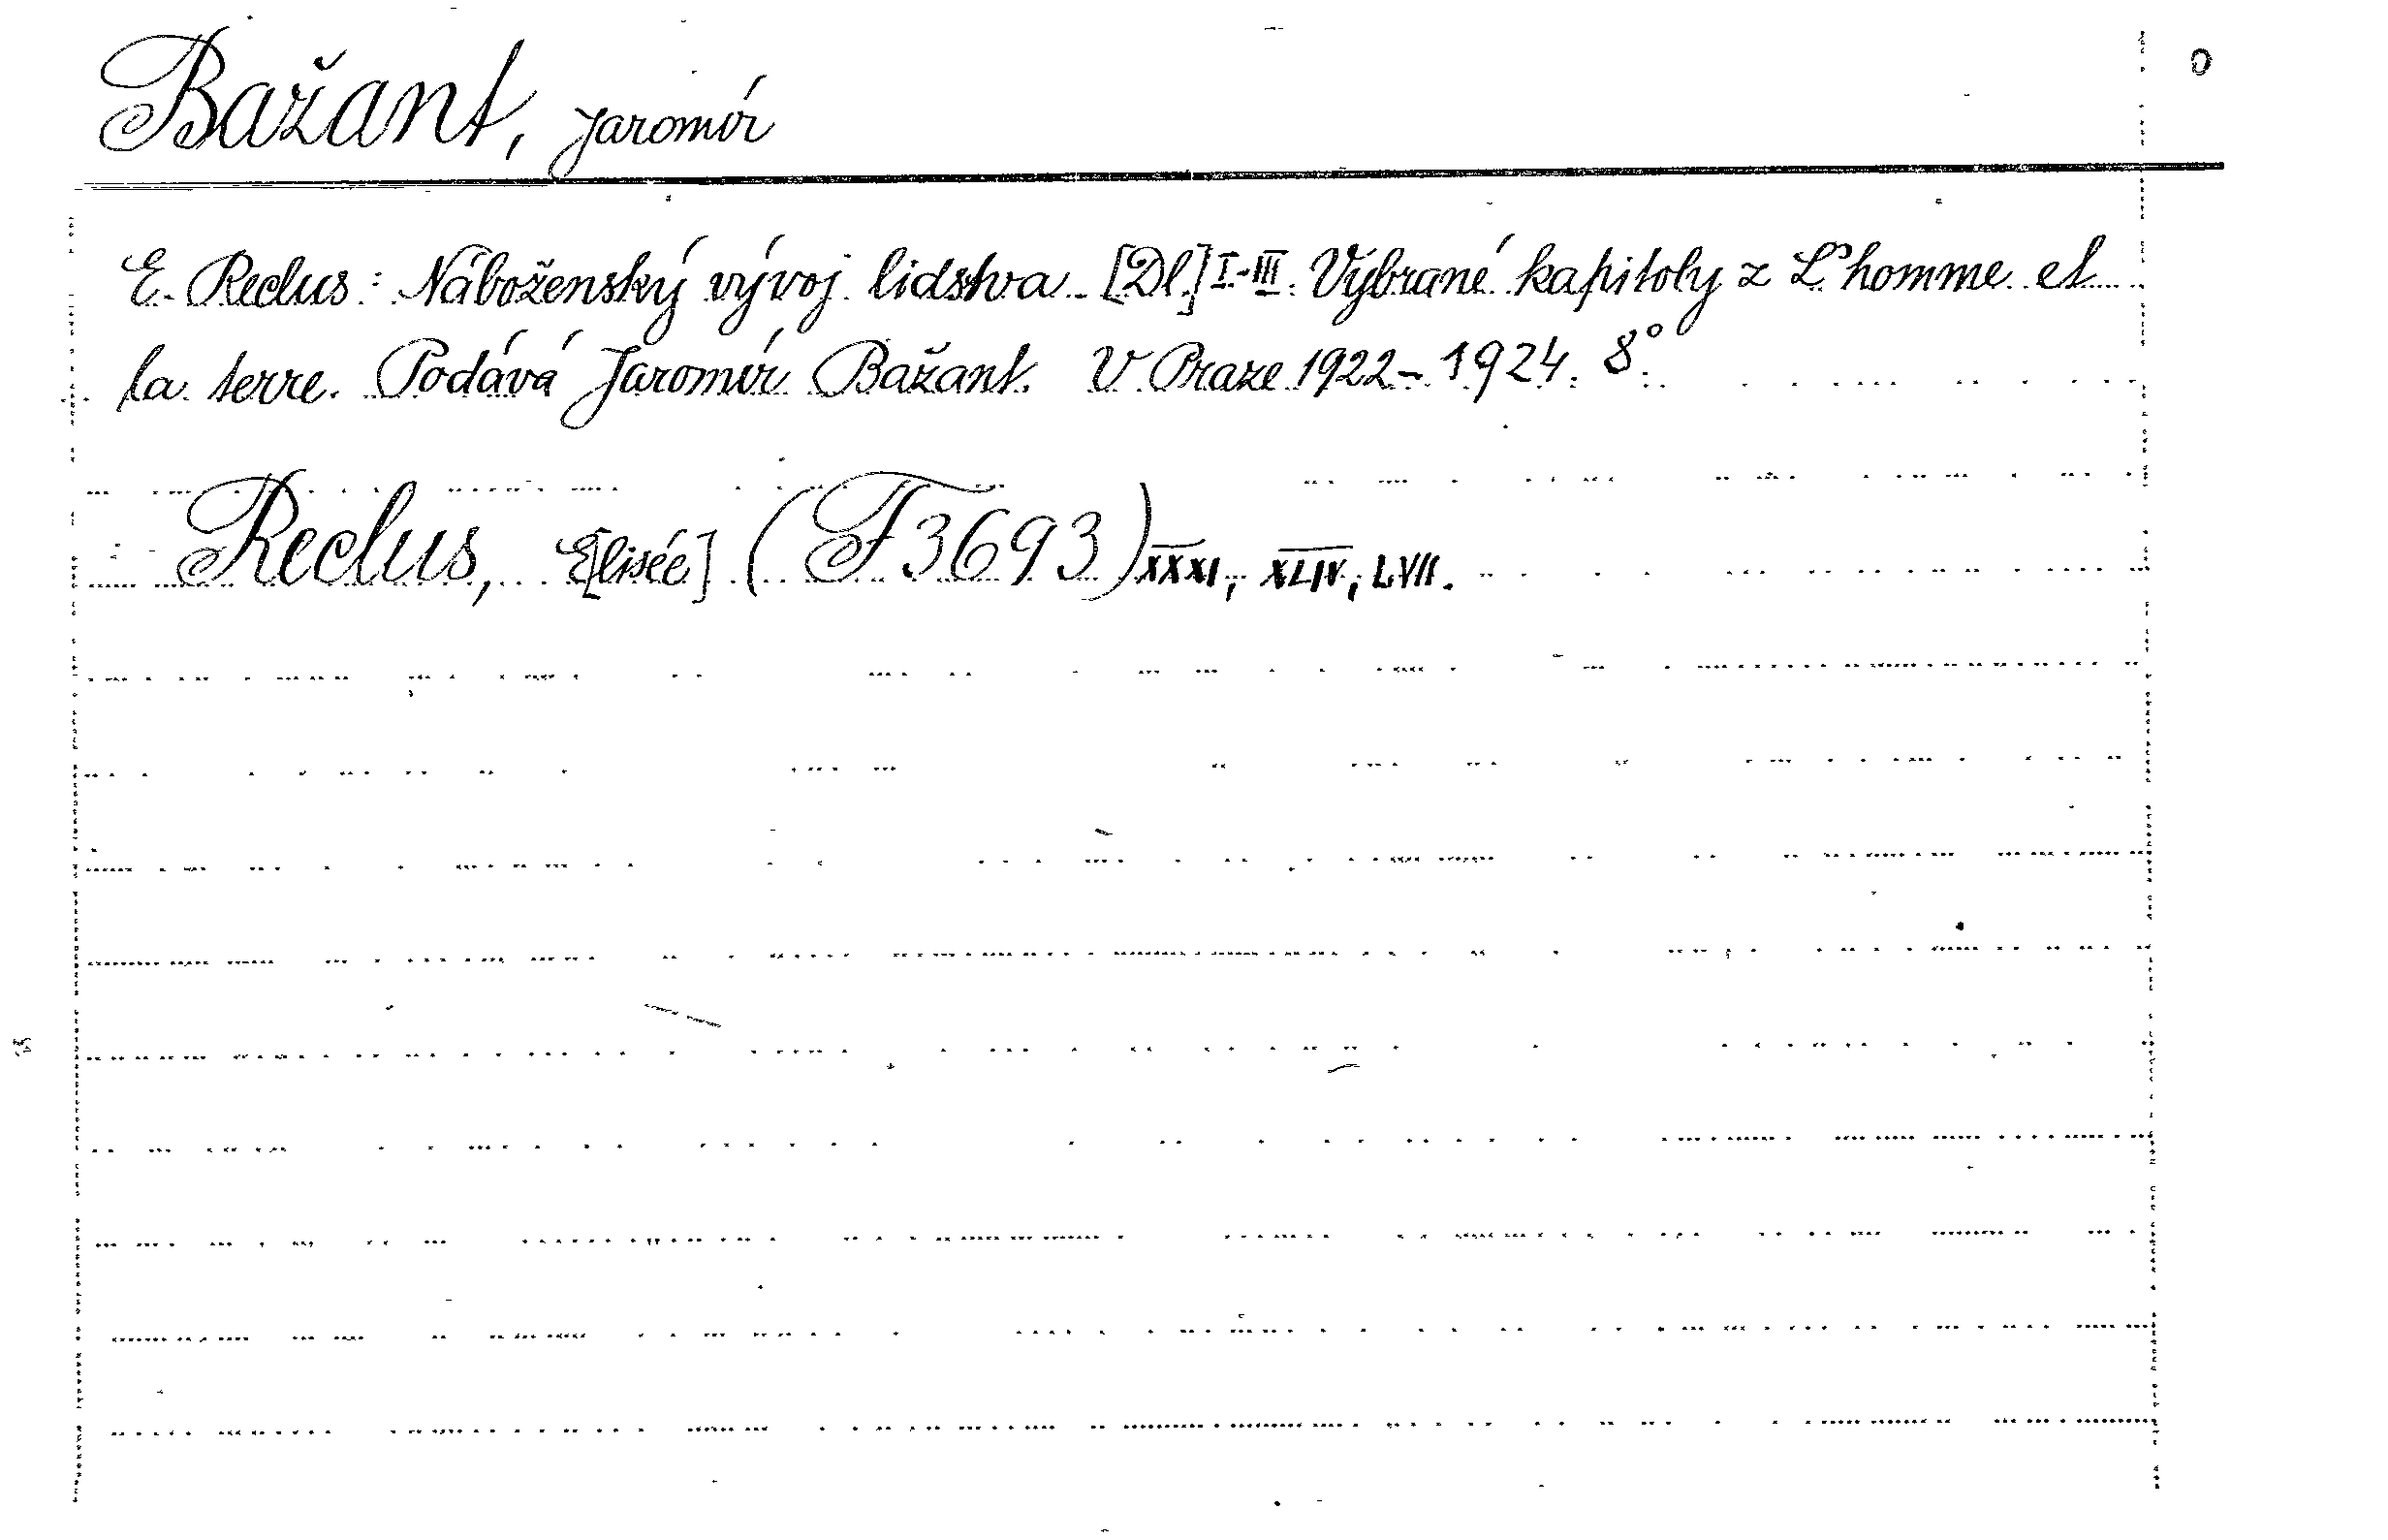 Bažant, Jaromír
E. Reclus: Náboženský vývoj lidstva. [Dl.] I.-III. Vybrané kapitoly z L'homme et
la terre. Podává Jaromír Bažant. V Praze 1922-1924. 8°.
Reclus, E[lisée] (F 3693) XXXI, XLIV, LVII.